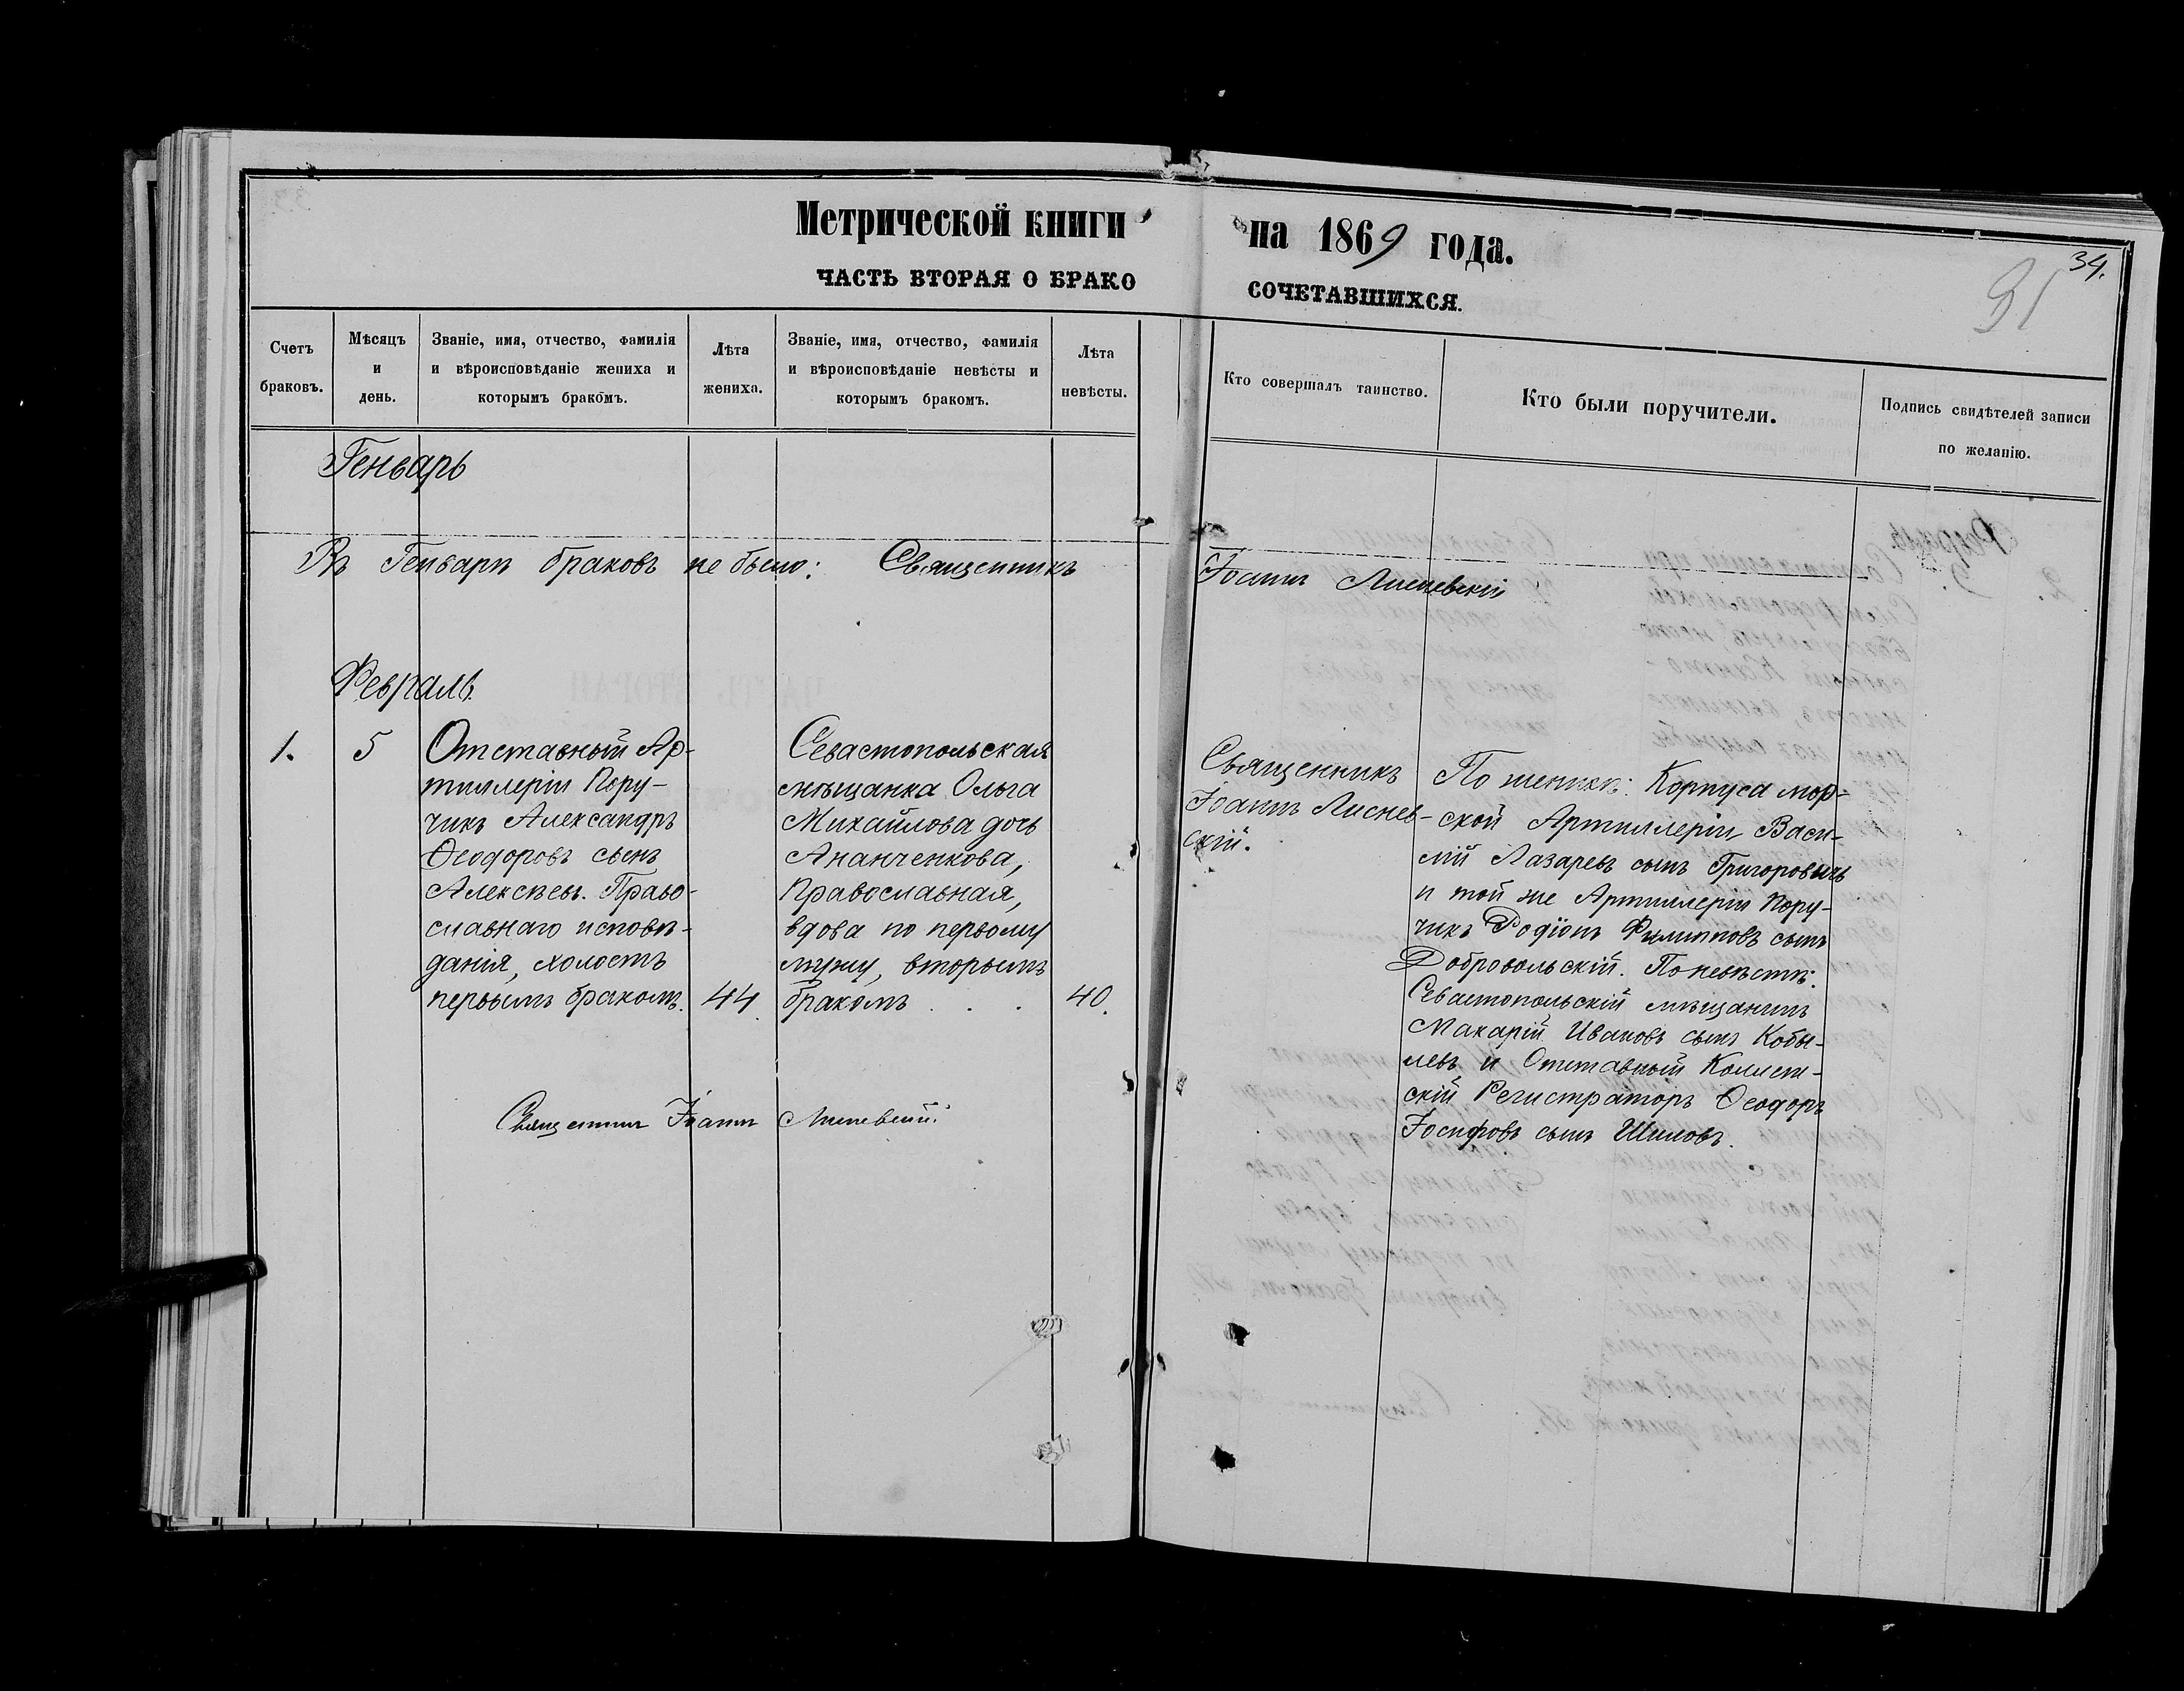 Метрической книги на 1869 года.
34.
ЧАСТЬ ВТОРАЯ О БРАКО СОЧЕТАВШИХСЯ.
31
Счетъ браковъ.
Мѣсяцъ и день.
Званіе, имя, отчество, фамилія
и вѣроисповѣданіе жениха и
которымъ бракомъ.
Лѣта жениха.
Званіе, имя, отчество, фамилія
и вѣроисповѣданіе невѣсты и
которымъ бракомъ.
Лѣта невѣсты.
Кто совершалъ таинство.
Кто были поручители.
Подпись свидѣтелей записи
по желанію.
Генварь
Въ Генварѣ браковъ не было: Священникъ Іоаннъ Лисневскій
Февраль.
1.
5
Отставный Ар-
тиллеріи Пору-
чикъ Александръ
Ѳеодоровъ сынъ
Алексѣевъ. Право-
славнаго исповѣ-
данія, холостъ
первымъ бракомъ.
44.
Севастопольская
мѣщанка Ольга
Михайлова дочь
Ананченкова,
Православная,
вдова по первому
мужу, вторымъ
бракомъ . . .
40.
Священникъ
Іоаннъ Лиснев-
скій.
По женихѣ: Корпуса мор-
ской Артиллеріи Васи-
лій Лазаревъ сынъ Григоровичъ
и той же Артиллеріи Пору-
чикъ Родіонъ Филипповъ сынъ
Добровольскій. По невѣстѣ:
Севастопольскій мѣщанинъ
Макарій Ивановъ сынъ Кобы-
левъ и Отставный Коллеж-
скій Регистраторъ Ѳеодоръ
Іосифовъ сынъ Шиловъ.
Священникъ Іоаннъ Лисневскій.